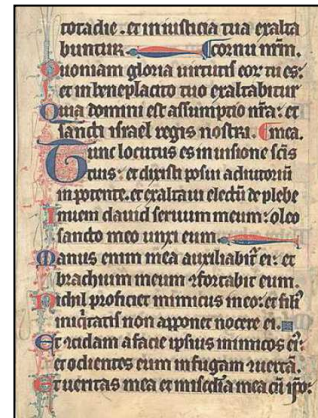 totadie. et in iusticia tua exalta
buntur. cornu nrm.
Quoniam gloria uirtutis eor tu es:
et in beneplacito tuo exaltabitur
Quia domini est assumptio nra: et
sancti israel regis nostri. mea.
Tunc locutus es in uisione scis
tuis: et dixisti posui adiutoriu
in potente. et exaltaui electu de plebe
Inueni dauid seruum meum: oleo
sancto meo unxi eum
Manus enim mea auxiliabit ei: et
brachium meum confortabit eum.
Nichil proficiet inimicus in eo: et fili
iniqitatis non apponet nocere ei.
Et concidam a facie ipsius inimicos ei:
et odientes eum in fugam conuerta.
Et ueritas mea et misedia mea cu ipo: